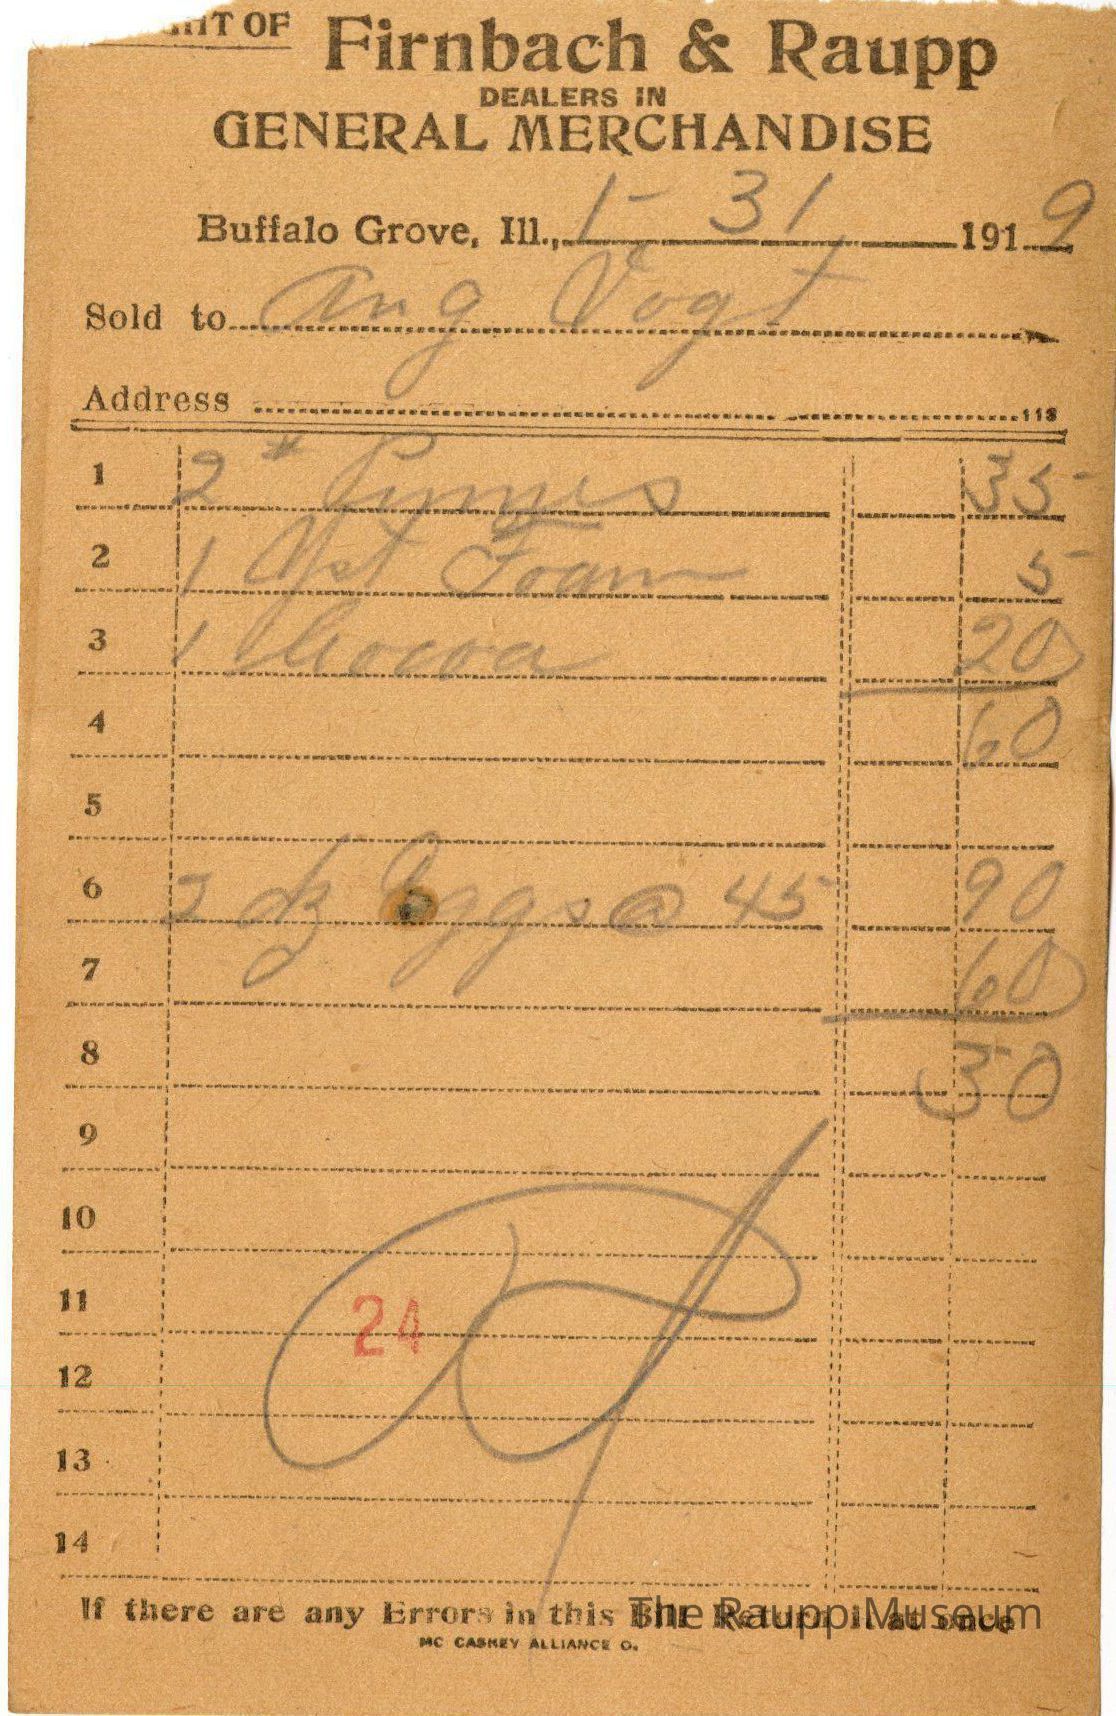 OF Firnbach & Raupp
DEALERS IN
GENERAL MERCHANDISE
Buffalo Grove, Ill., 1-31 1919
Sold to Aug Vogt
Address 118
1 2 # Prunes 35
2 1 Yst Foam 5
3 1 Cocoa 20
4 60
5
6 2 dz Eggs @ 45 90
7 60
8 30
9
10
11 24
12
13
14
If there are any Errors in this Bill Return it at once
The Raupp Museum
MC CASKEY ALLIANCE O.